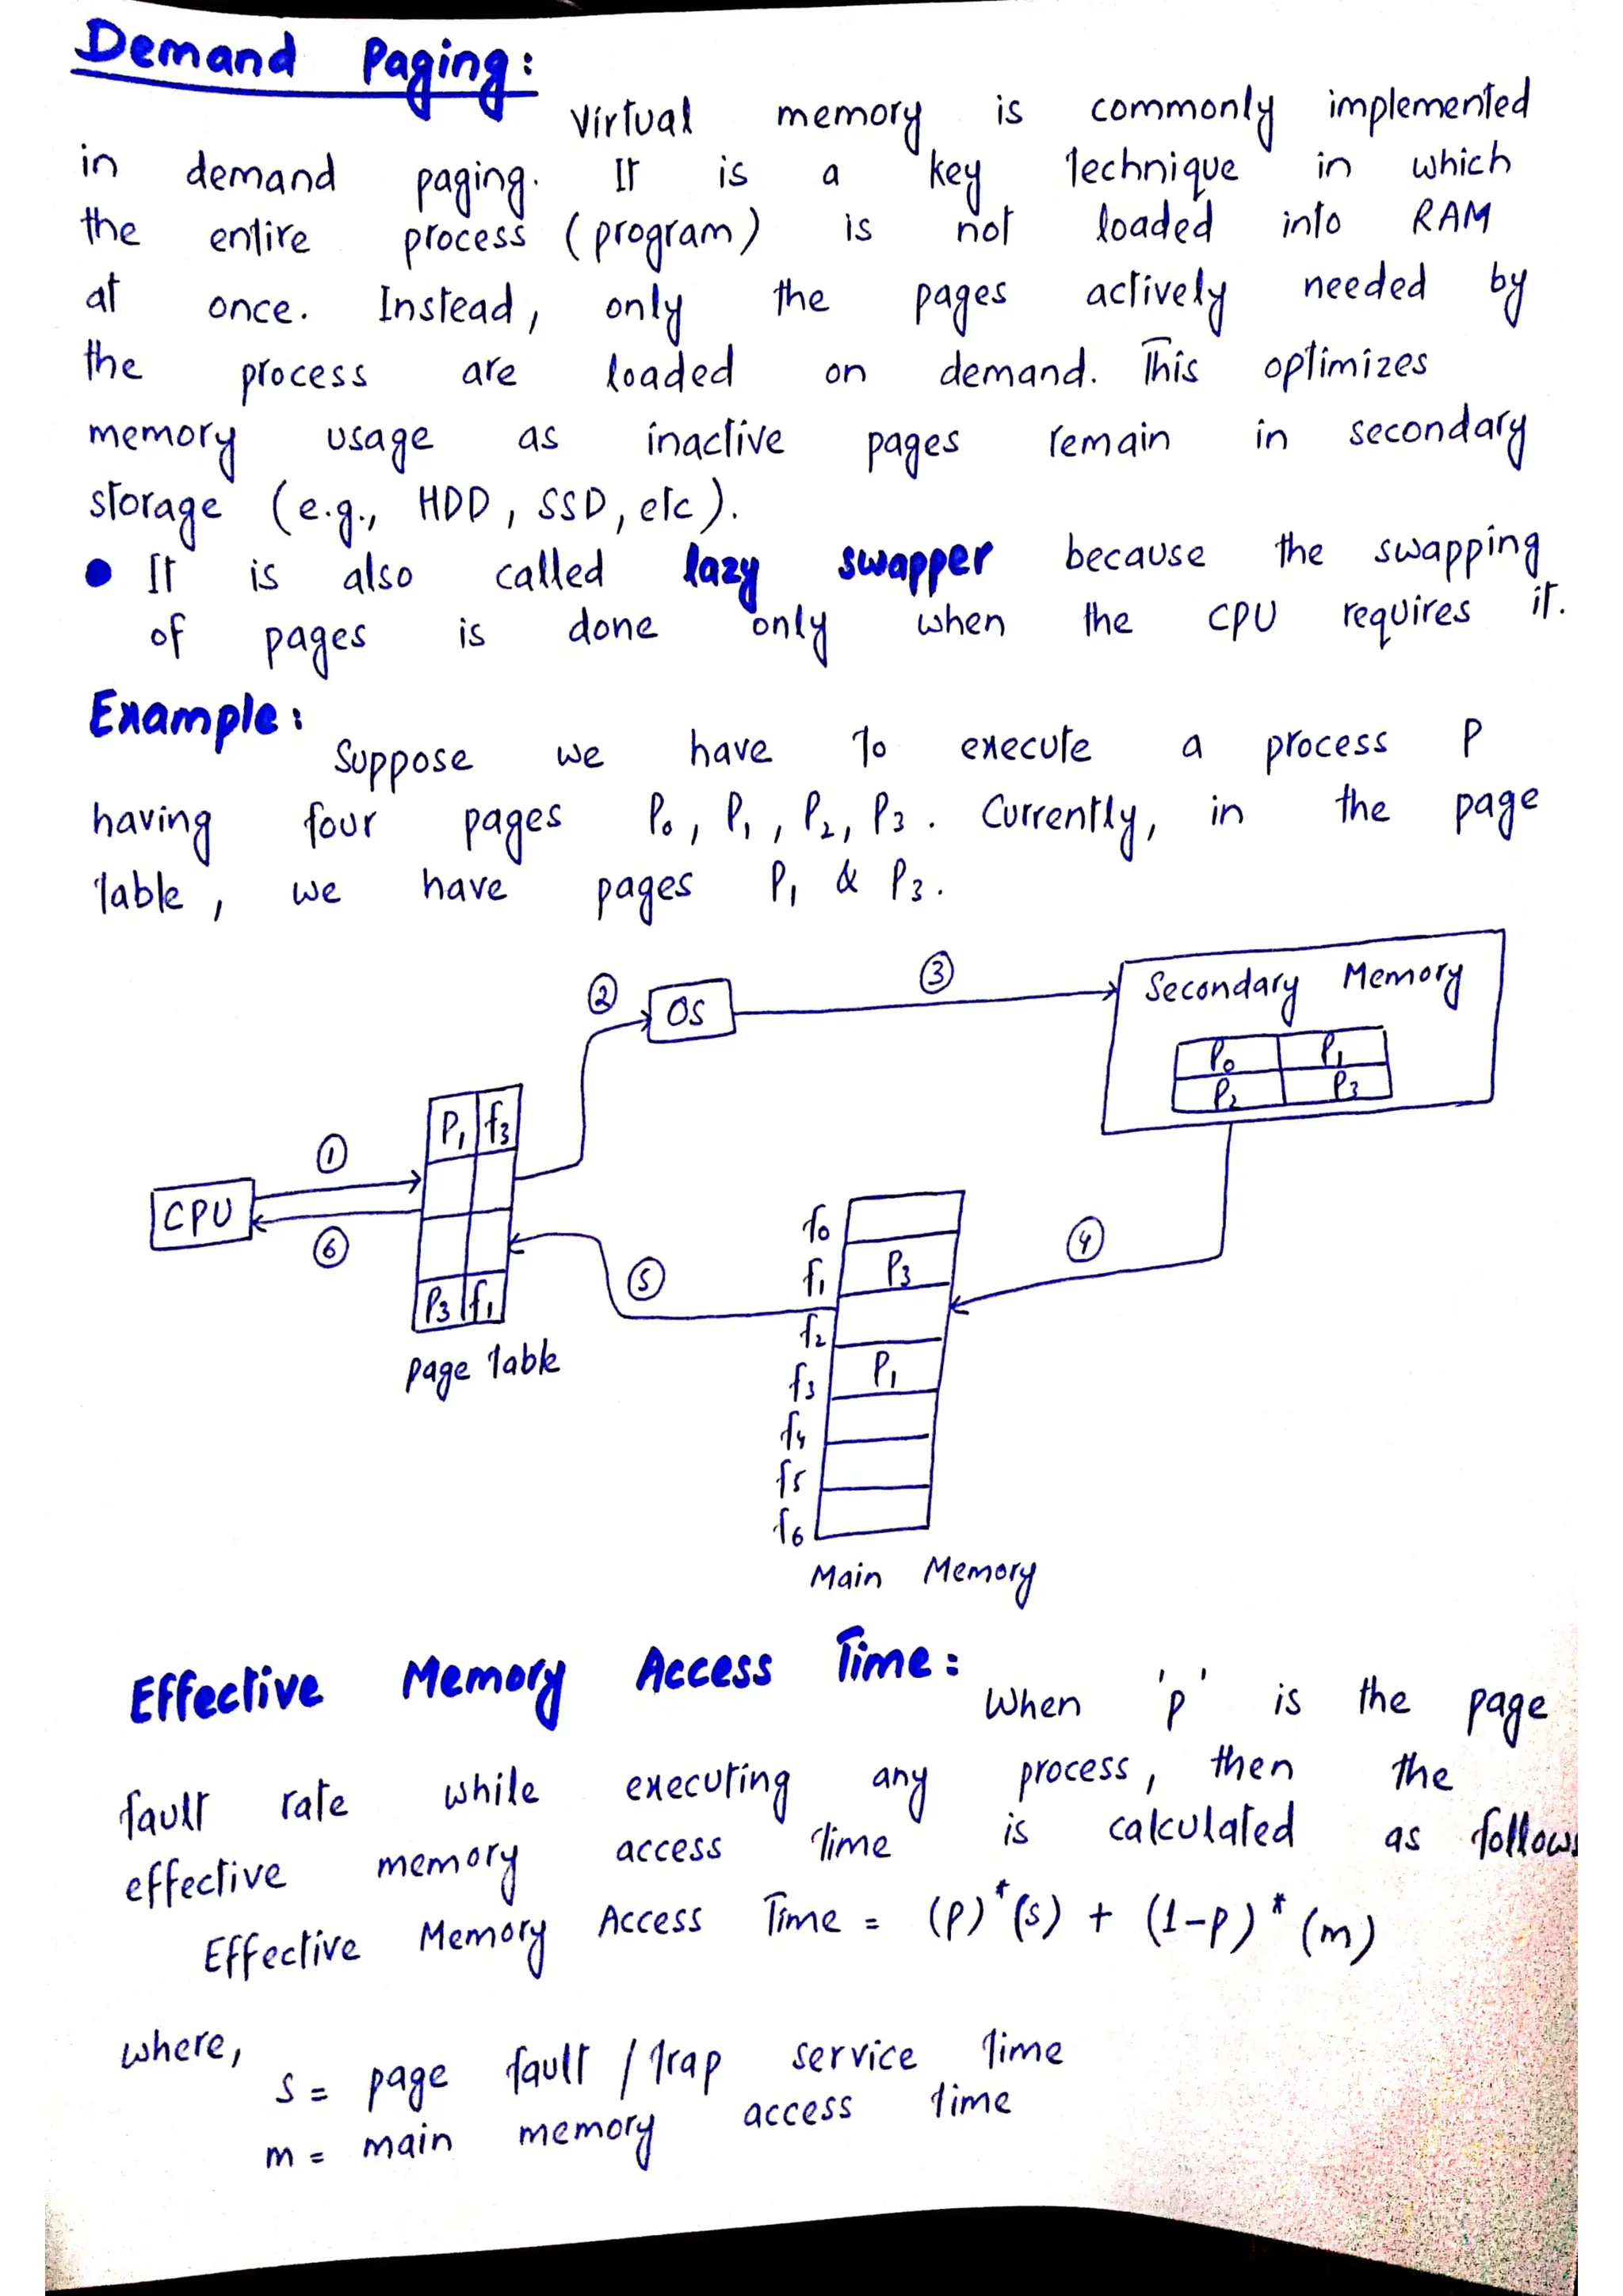 Demand Paging:
Virtual memory is commonly implemented
in demand paging. It is a key technique in which
the entire process (program) is not loaded into RAM
at once. Instead, only the pages actively needed by
the process are loaded on demand. This optimizes
memory usage as inactive pages remain in secondary
storage (e.g., HDD, SSD, etc).
• It is also called lazy swapper because the swapping
of pages is done only when the CPU requires it.
Example:
Suppose we have to execute a process P
having four pages P₀, P₁, P₂, P₃. Currently, in the page
table, we have pages P₁ & P₃.
② OS ③ Secondary Memory
P₀ P₁
P₂ P₃
P₁ f₃
①
CPU
⑥
P₃ f₁
Page table
⑤
④
f₀
f₁ P₃
f₂
f₃ P₁
f₄
f₅
f₆
Main Memory
Effective Memory Access Time: When 'p' is the page
fault rate while executing any process, then the
effective memory access time is calculated as follows
Effective Memory Access Time = (p)*(s) + (1-p)*(m)
where,
s = page fault / trap service time
m = main memory access time